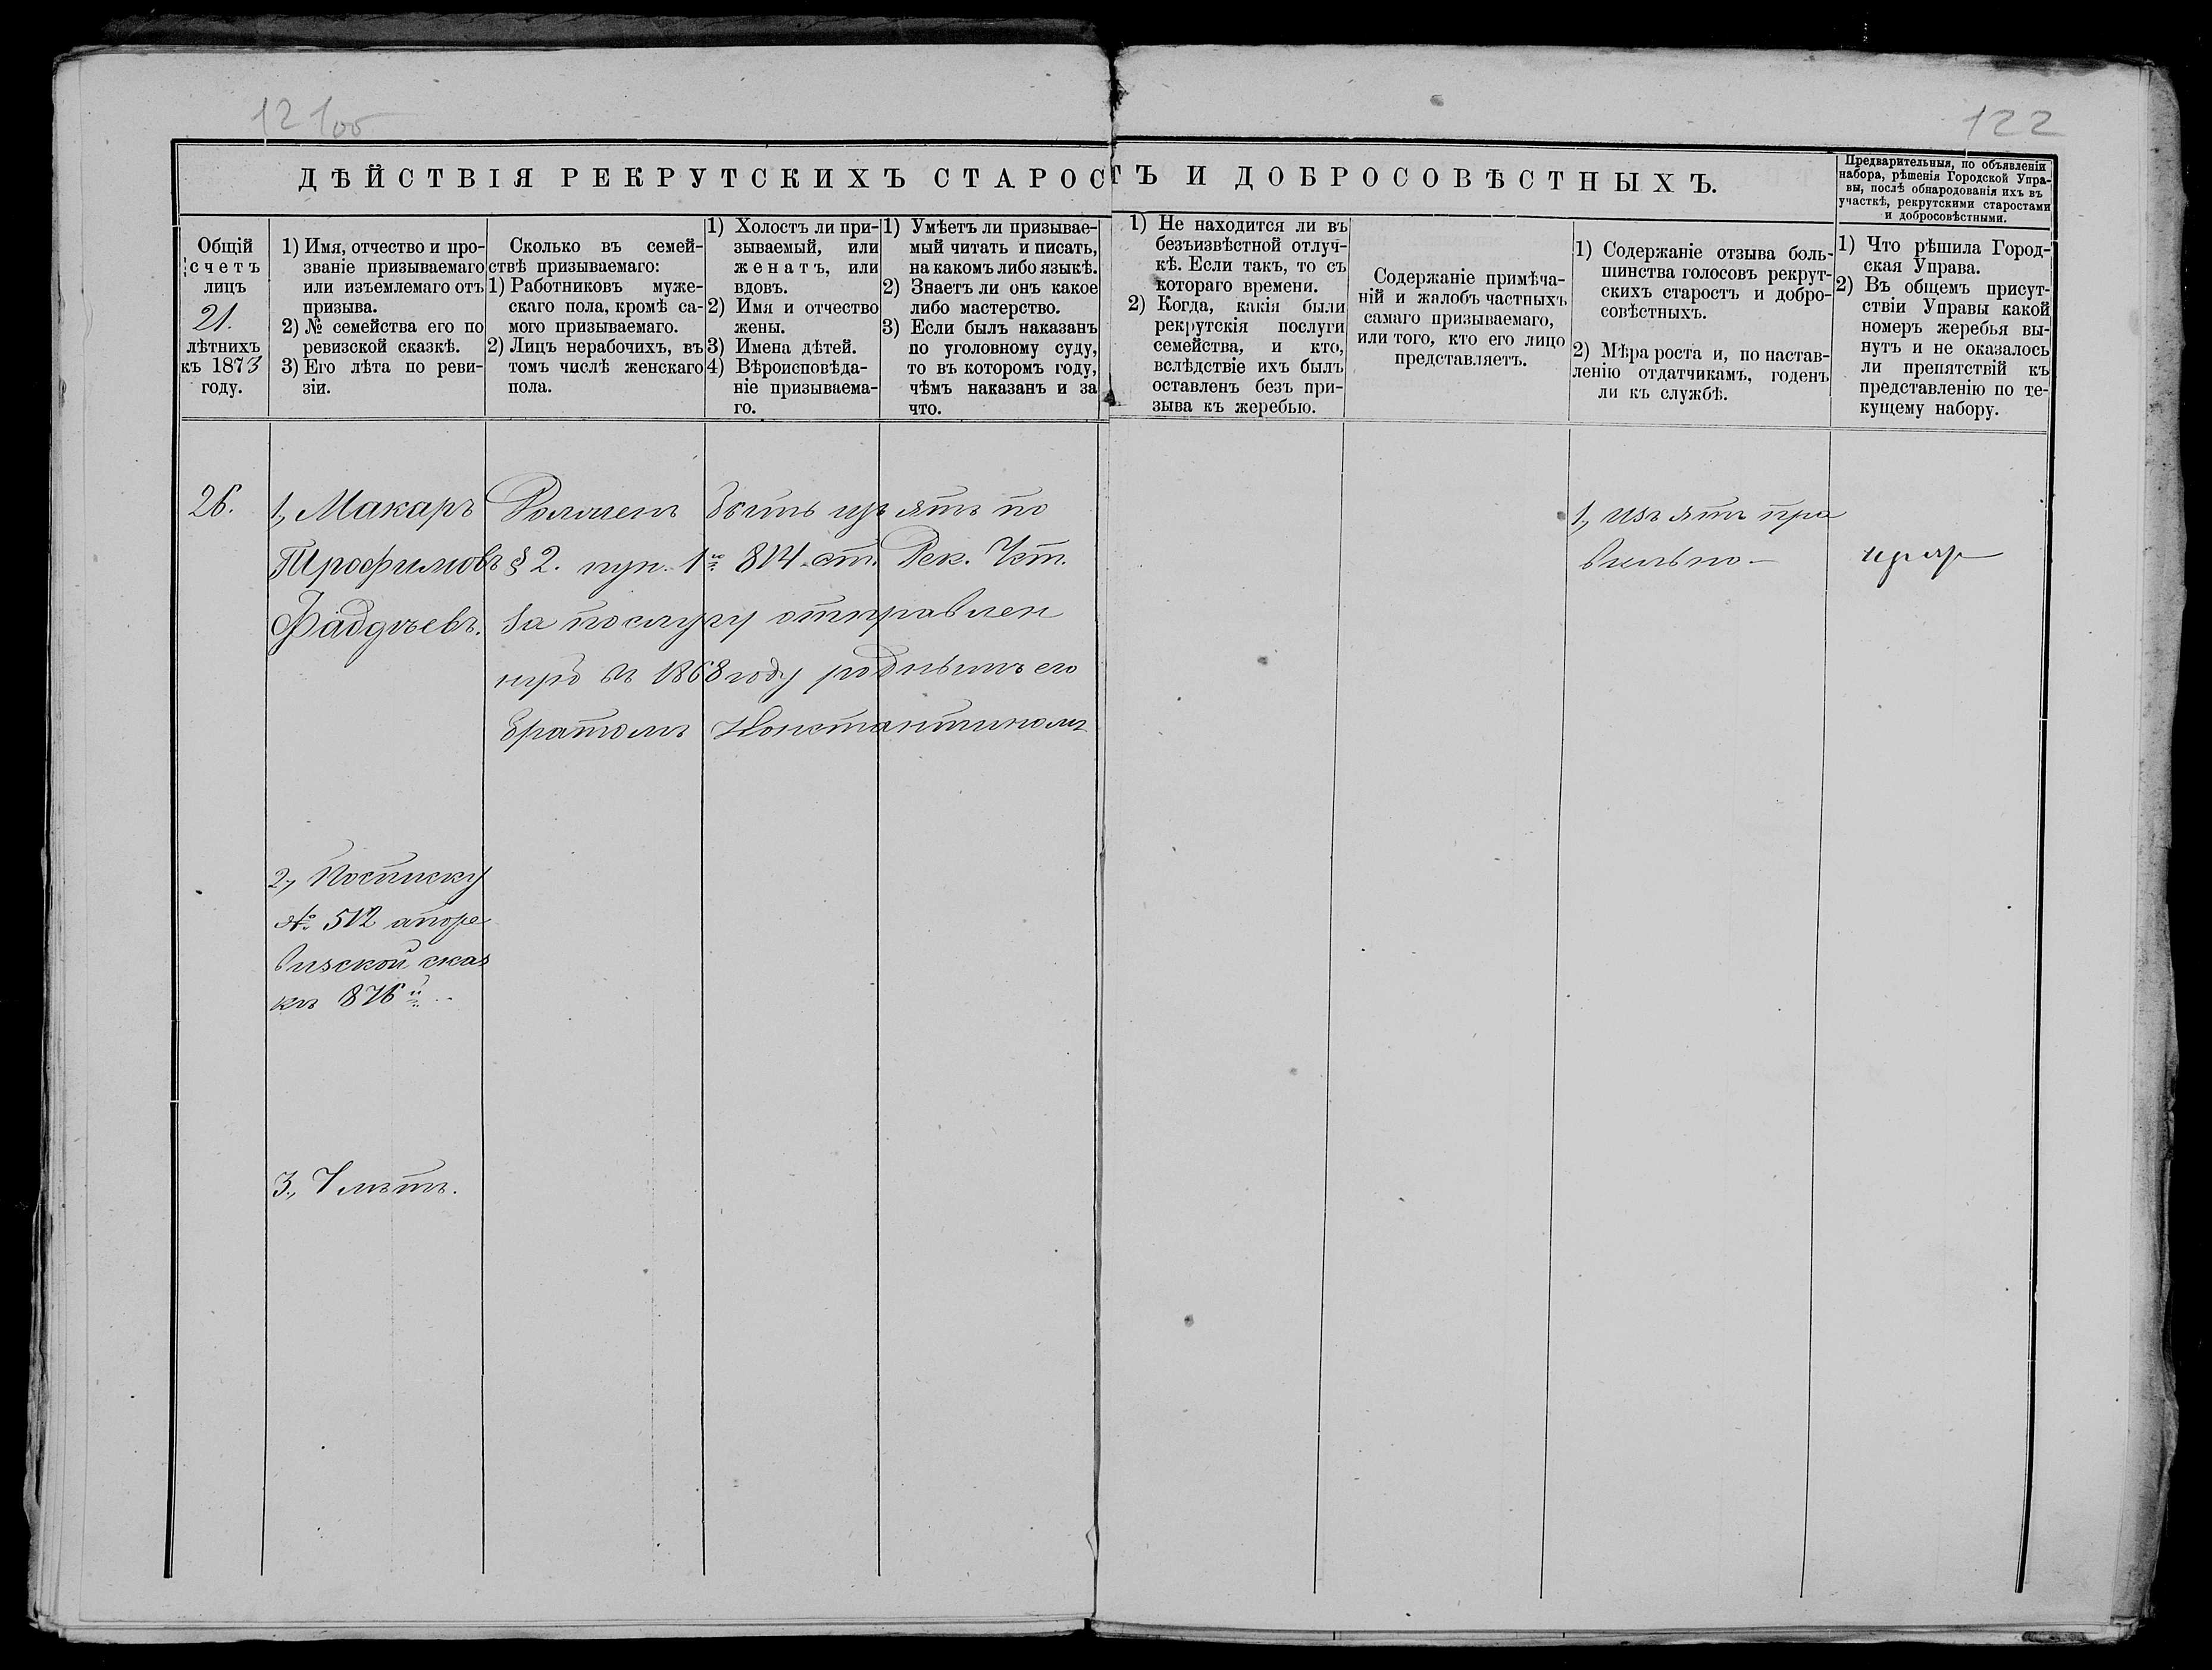 121об
122
ДѢЙСТВІЯ РЕКРУТСКИХЪ СТАРОСТЪ И ДОБРОСОВѢСТНЫХЪ.
Предварительныя, по объявленіи
набора, рѣшенія Городской Упра-
вы, послѣ обнародованія ихъ въ
участкѣ, рекрутскими старостами
и добросовѣстными.
Общій
счетъ
лицъ
21.
лѣтнихъ
къ 1873
году.
1) Имя, отчество и про-
званіе призываемаго
или изъемлемаго отъ
призыва.
2) № семейства его по
ревизской сказкѣ.
3) Его лѣта по реви-
зіи.
Сколько въ семей-
ствѣ призываемаго:
1) Работниковъ муже-
скаго пола, кромѣ са-
мого призываемаго.
2) Лицъ нерабочихъ, въ
томъ числѣ женскаго
пола.
1) Холостъ ли при-
зываемый, или
женатъ, или
вдовъ.
2) Имя и отчество
жены.
3) Имена дѣтей.
4) Вѣроисповѣда-
ніе призываема-
го.
1) Умѣетъ ли призывае-
мый читать и писать,
на какомъ либо языкѣ.
2) Знаетъ ли онъ какое
либо мастерство.
3) Если былъ наказанъ
по уголовному суду,
то въ которомъ году,
чѣмъ наказанъ и за
что.
1) Не находится ли въ
безъизвѣстной отлуч-
кѣ. Если такъ, то съ
котораго времени.
2) Когда, какія были
рекрутскія послуги
семейства, и кто,
вслѣдствіе ихъ былъ
оставленъ безъ при-
зыва къ жеребью.
Содержаніе примѣча-
ній и жалобъ частныхъ
самаго призываемаго,
или того, кто его лицо
представляетъ.
1) Содержаніе отзыва боль-
шинства голосовъ рекрут-
скихъ старостъ и добро-
совѣстныхъ.
2) Мѣра роста и, по настав-
ленію отдатчикамъ, годенъ
ли къ службѣ.
1) Что рѣшила Город-
ская Управа.
2) Въ общемъ присут-
ствіи Управы какой
номеръ жеребья вы-
нутъ и не оказалось
ли препятствій къ
представленію по те-
кущему набору.
26.
1, Макаръ
Трофимовъ
Фаддѣевъ.
Долженъ быть изъятъ по
§ 2. пун. 1му 814 ст. Рек. Уст.
за послугу отправлен
ную въ 1868 году роднымъ его
братомъ Константиномъ
1, изъятъ пра
вильно.—
2, По списку
№ 512 а по ре
визской сказ
кѣ 876й.
3, 7 лѣтъ.